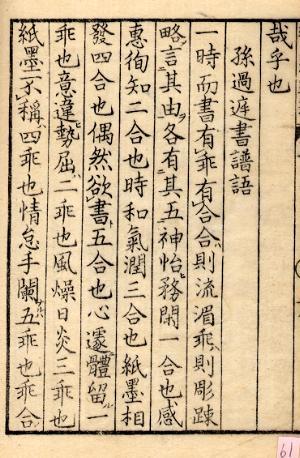 哉乎也
孫過庭書譜語
一時而書有乖有合合則流湄乖則彫踈
略言其由各有其五神怡務閑一合也感
惠徇知二合也時和氣潤三合也紙墨相
發四合也偶然欲書五合也心遽體留一
乖也意違勢屈二乖也風燥日炎三乖也
紙墨不稱四乖也情怠手闌五乖也乖合
61